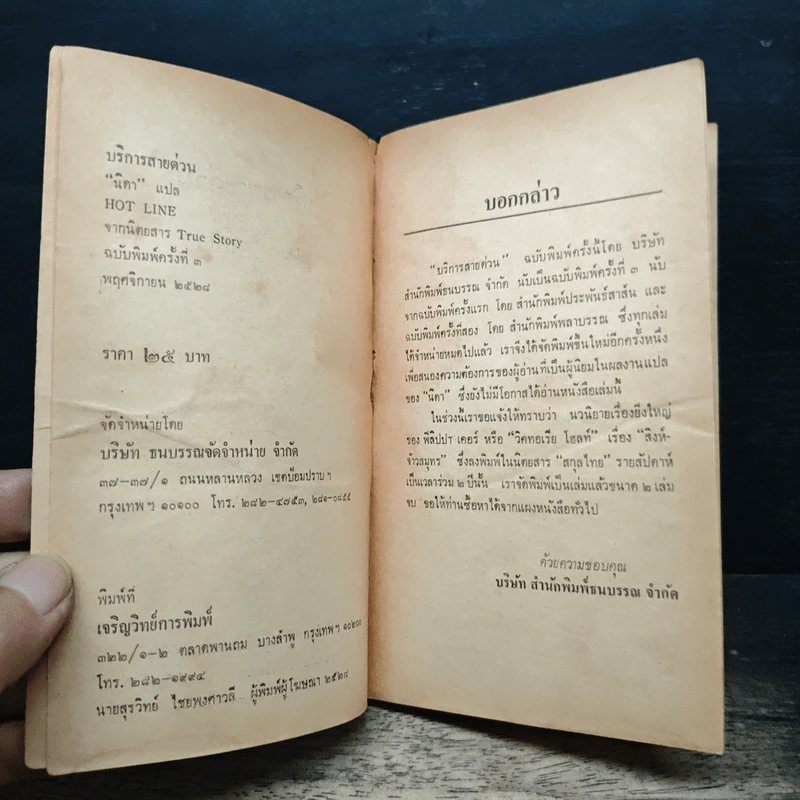 บริการสายด่วน
"นิดา" แปล
HOT LINE
จากนิตยสาร True Story
ฉบับพิมพ์ครั้งที่ ๓
พฤศจิกายน ๒๕๒๘
ราคา ๒๕ บาท
จัดจำหน่ายโดย
บริษัท ธนบรรณจัดจำหน่าย จำกัด
๓๗-๓๗/๑ ถนนหลานหลวง เขตป้อมปราบฯ
กรุงเทพฯ ๑๐๑๐๐ โทร. ๒๘๒-๔๗๕๓, ๒๘๑-๐๘๕๕
พิมพ์ที่
เจริญวิทย์การพิมพ์
๓๒๒/๑-๒ ตลาดพานถม บางลำพู กรุงเทพฯ ๑๐๒๐๐
โทร. ๒๘๒-๑๙๙๔
นายสุรวิทย์ ไชยพงศาวลี ผู้พิมพ์ผู้โฆษณา ๒๕๒๘
บอกกล่าว
"บริการสายด่วน" ฉบับพิมพ์ครั้งนี้โดย บริษัท
สำนักพิมพ์ธนบรรณ จำกัด นับเป็นฉบับพิมพ์ครั้งที่ ๓ นับ
จากฉบับพิมพ์ครั้งแรก โดย สำนักพิมพ์ประพันธ์สาส์น และ
ฉบับพิมพ์ครั้งที่สอง โดย สำนักพิมพ์พลาบรรณ ซึ่งทุกเล่ม
ได้จำหน่ายหมดไปแล้ว เราจึงได้จัดพิมพ์ขึ้นใหม่อีกครั้งหนึ่ง
เพื่อสนองความต้องการของผู้อ่านที่เป็นผู้นิยมในผลงานแปล
ของ "นิดา" ซึ่งยังไม่มีโอกาสได้อ่านหนังสือเล่มนี้
ในช่วงนี้เราขอแจ้งให้ทราบว่า นวนิยายเรื่องยิ่งใหญ่
ของ ฟิลิปปา เคอร์ หรือ "วิคทอเรีย โฮลท์" เรื่อง "สิงห์-
จ้าวสมุทร" ซึ่งลงพิมพ์ในนิตยสาร "สกุลไทย" รายสัปดาห์
เป็นเวลาร่วม ๒ ปีนั้น เราจัดพิมพ์เป็นเล่มแล้วขนาด ๒ เล่ม
จบ ขอให้ท่านซื้อหาได้จากแผงหนังสือทั่วไป
ด้วยความขอบคุณ
บริษัท สำนักพิมพ์ธนบรรณ จำกัด